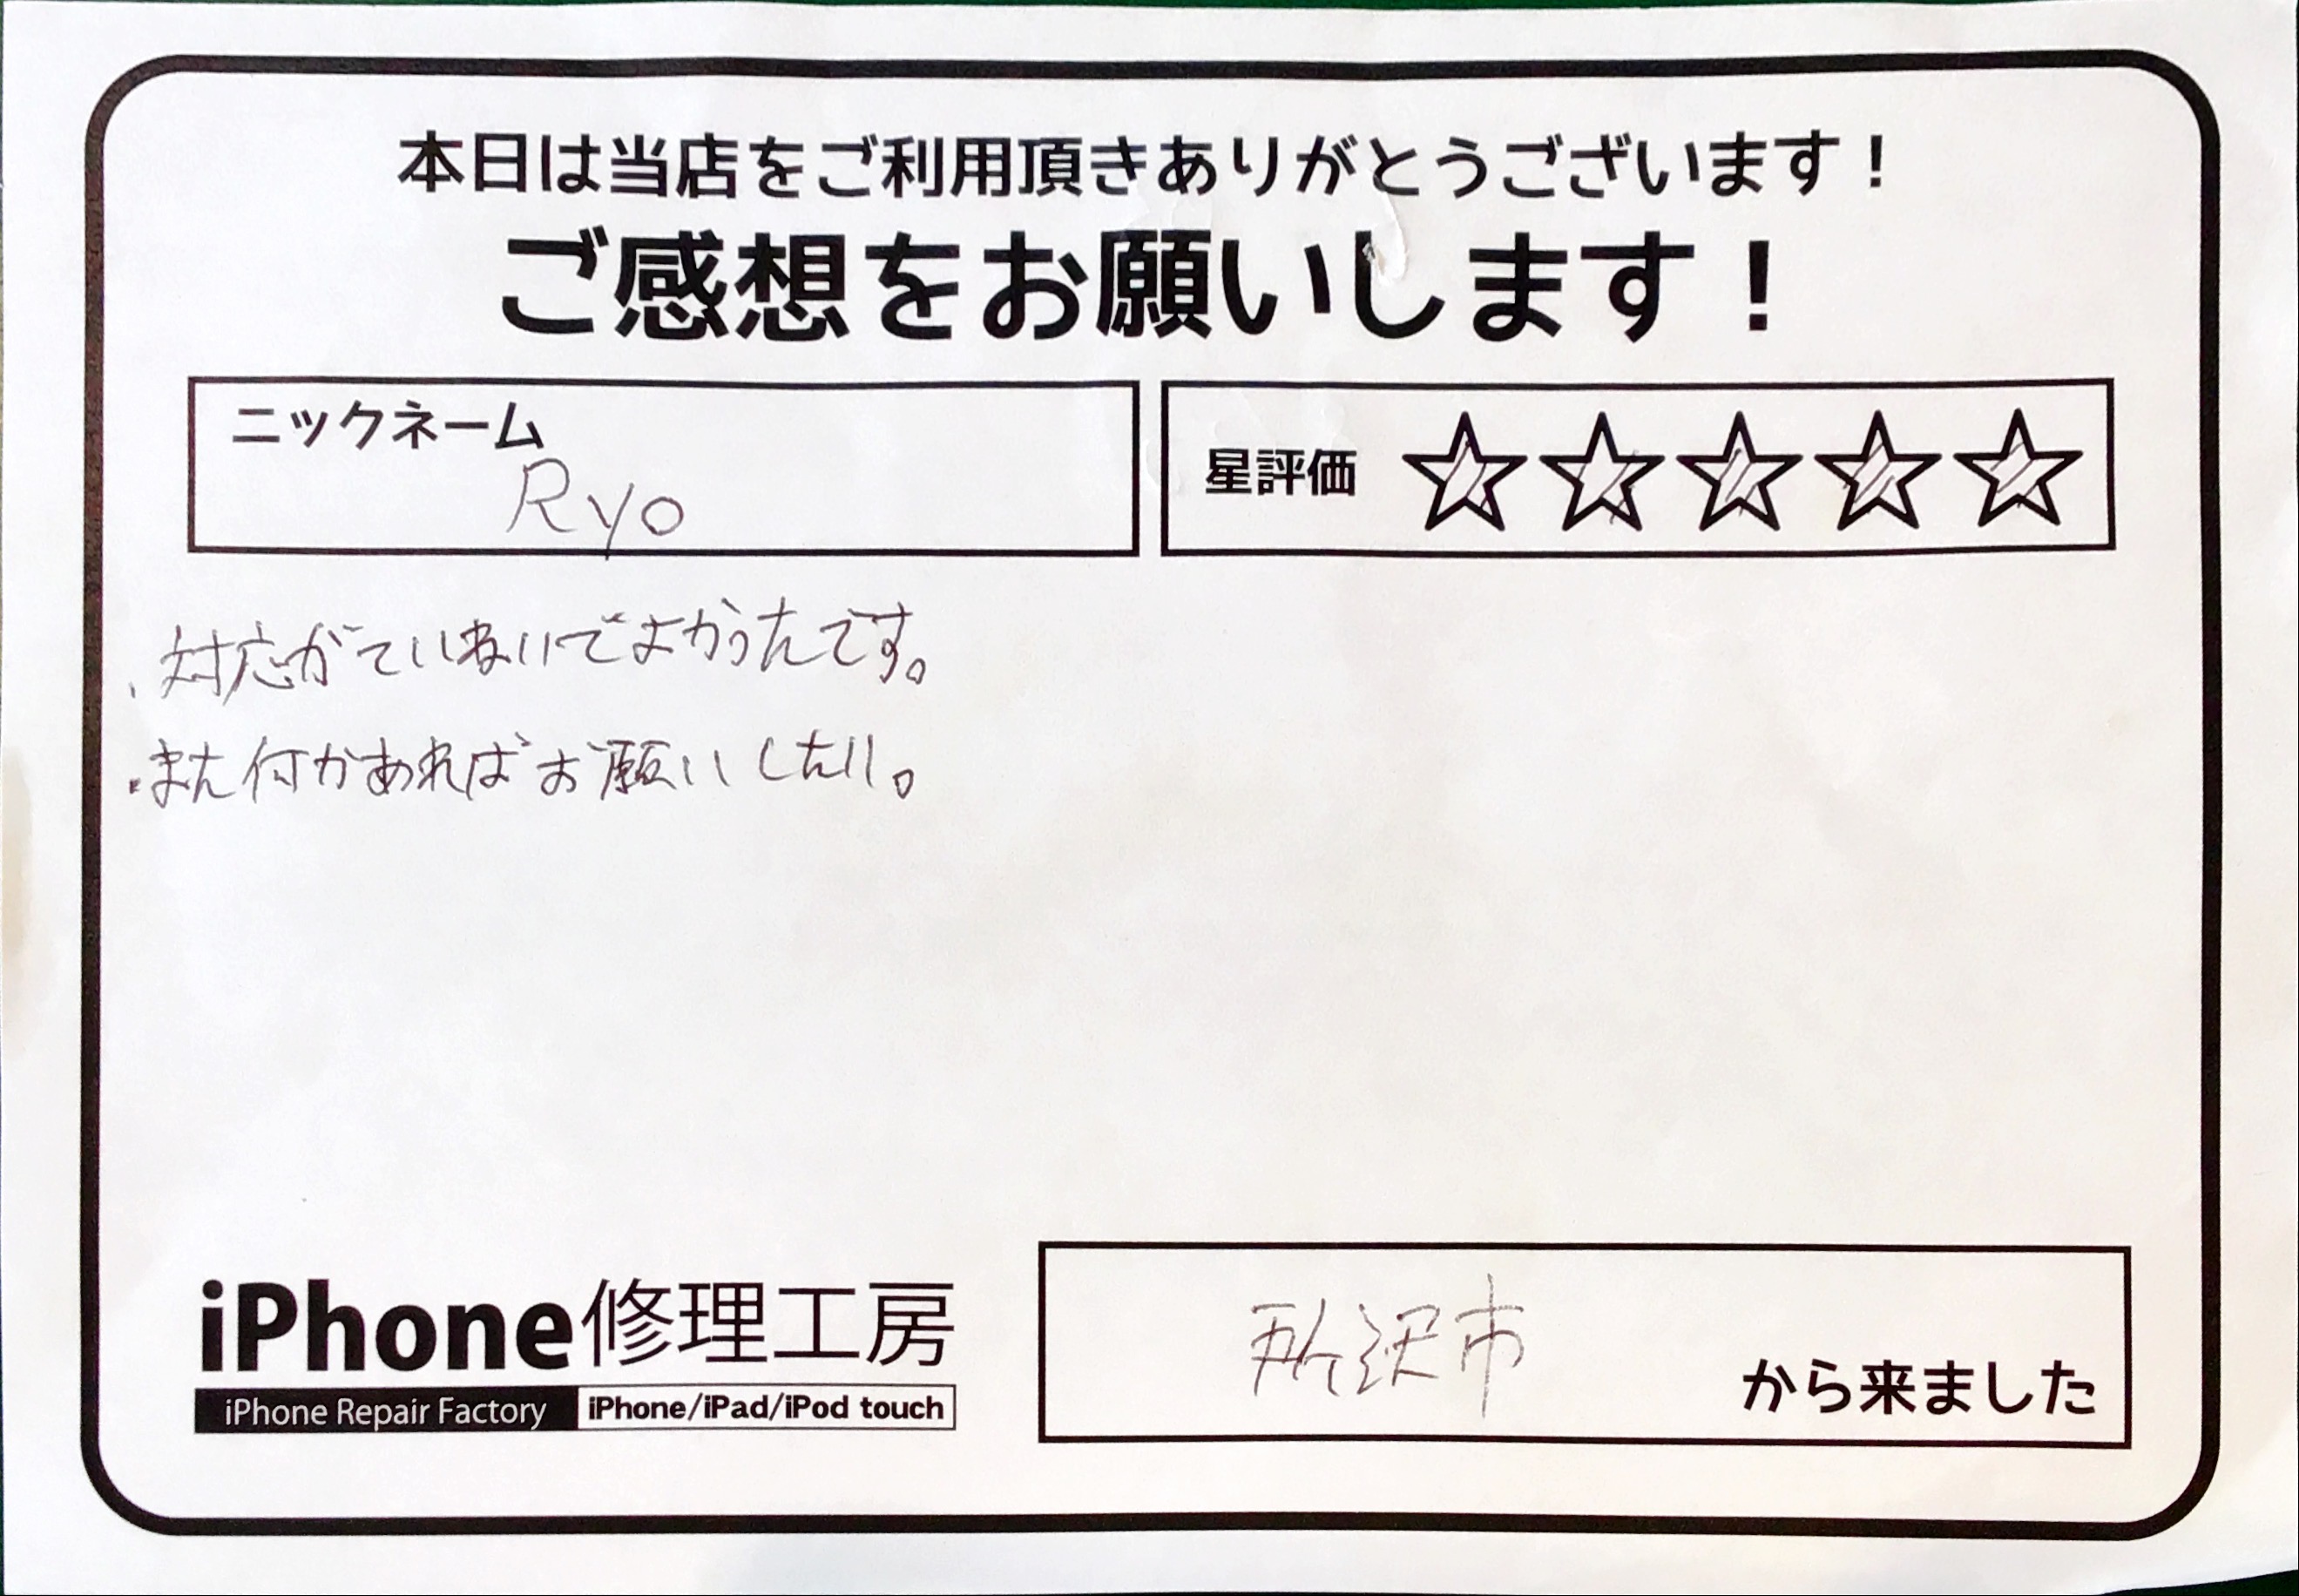 本日は当店をご利用頂きありがとうございます！
ご感想をお願いします！
ニックネーム
Ryo
星評価 ☆☆☆☆☆
・対応がていねいでよかったです。
・また何かあればお願いしたい。
iPhone修理工房
iPhone Repair Factory iPhone/iPad/iPod touch
所沢市 から来ました